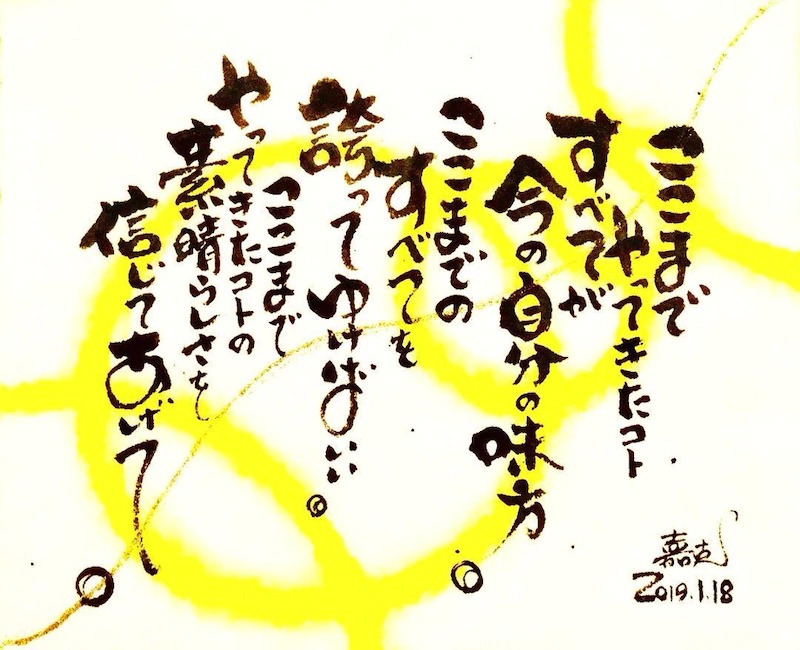 ここまで
やってきたコト
すべてが
今の自分の味方。
ここまでの
すべてを
誇ってゆけばいい。
ここまで
やってきたコトの
素晴らしさを
信じてあげて。
2019.1.18